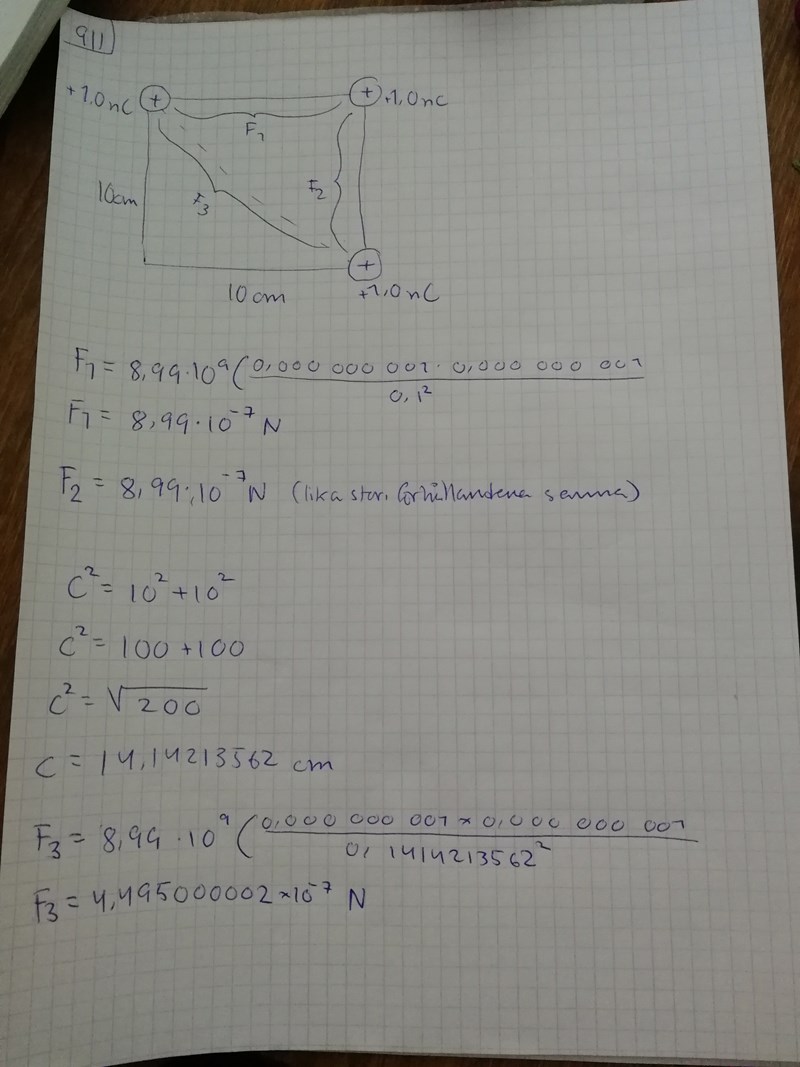 911
+1.0nC + + +1,0nC
F1
10cm F3 F2
+
10cm +1,0nC
F1 = 8,99·10^9 (0,000 000 001 · 0,000 000 001 / 0,1^2
F1 = 8,99·10^-7 N
F2 = 8,99·10^-7 N (lika stor, förhållandena samma)
C^2 = 10^2 + 10^2
C^2 = 100 + 100
C^2 = √200
C = 14,14213562 cm
F3 = 8,99·10^9 (0,000 000 001 × 0,000 000 001 / 0,1414213562^2
F3 = 4,495000002 × 10^-7 N